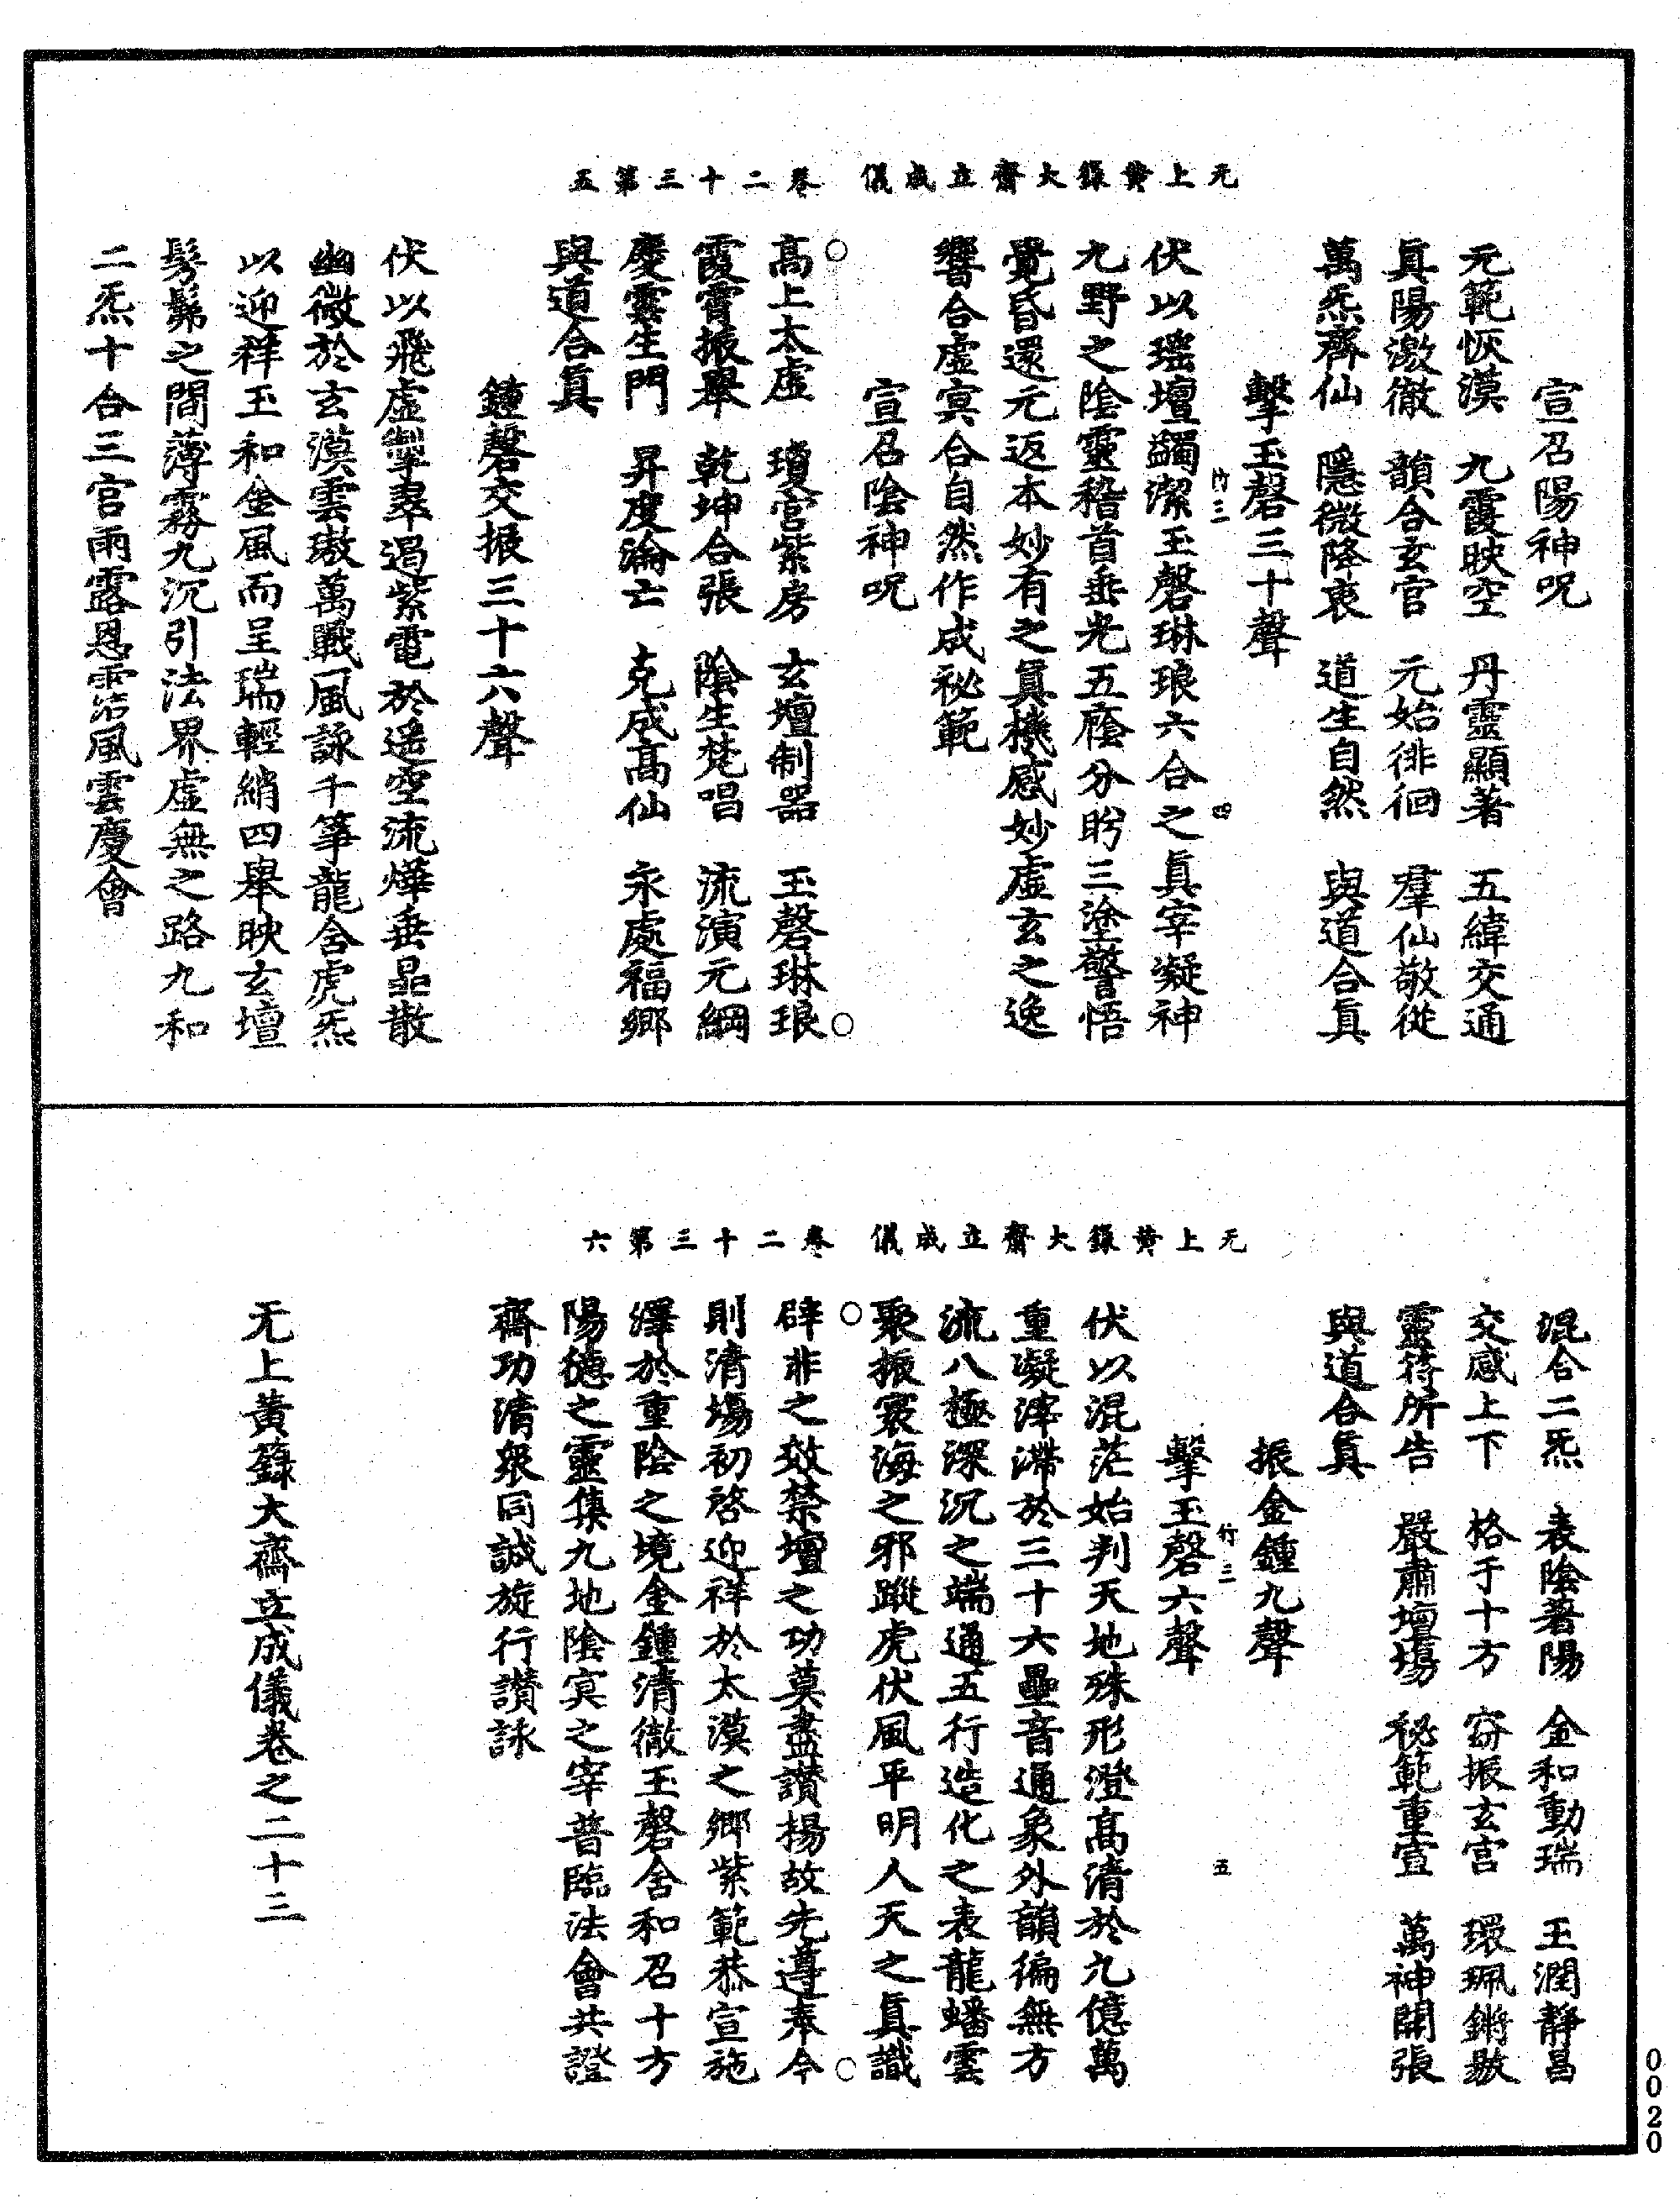 无上黄籙大齋立成儀　卷二十三第五
宣召陽神呪
元範恢漠　九霞映空　丹靈顯著　五緯交通
真陽激徹　韻合玄官　元始徘徊　羣仙敬從
萬炁齊仙　隱微降衷　道生自然　與道合真
擊玉磬三十聲
竹三　四
伏以瑶壇蠲潔玉磬琳琅六合之真宰凝神
九野之陰靈稽首垂光五廕分盻三塗警悟
覺昏還元返本妙有之真機感妙虛玄之逸
響合虛冥合自然作成祕範
宣召陰神呪
高上太虛　瓊宮紫房　玄壇制器　玉磬琳琅
霞霄振舉　乾坤合張　陰生梵唱　流演元綱
慶雲生門　昇度淪亡　克成高仙　永處福鄉
與道合真
鍾磬交振三十六聲
伏以飛虛掣翠遏紫電於遥空流燁垂晶散
幽微於玄漠雲璈萬戰風詠千筝龍舍虎炁
以迎祥玉和金風而呈瑞輕綃四舉映玄壇
髣髴之間薄霧九沉引法界虛無之路九和
二炁十合三官雨露恩霑風雲慶會
无上黄籙大齋立成儀　卷二十三第六
混合二炁　表陰著陽　金和動瑞　玉潤靜昌
交感上下　格于十方　窈振玄宫　環珮鏘鏘
靈符所告　嚴肅壇場　祕範重宣　萬神開張
與道合真
振金鍾九聲
竹三　五
擊玉磬六聲
伏以混茫始判天地殊形澄高清於九億萬
重凝滓滯於三十六壘音通象外韻徧無方
流八極深沉之端通五行造化之表龍蟠雲
聚振寰海之邪蹤虎伏風平明人天之真識
辟非之效禁壇之功莫盡讃揚故先遵奉今
則清塲初啓迎祥於太漠之鄉紫範恭宣施
澤於重陰之境金鍾清徹玉磬舍和召十方
陽德之靈集九地陰冥之宰普臨法會共證
齋功清衆同誠旋行讃詠
无上黄籙大齋立成儀卷之二十三
0020